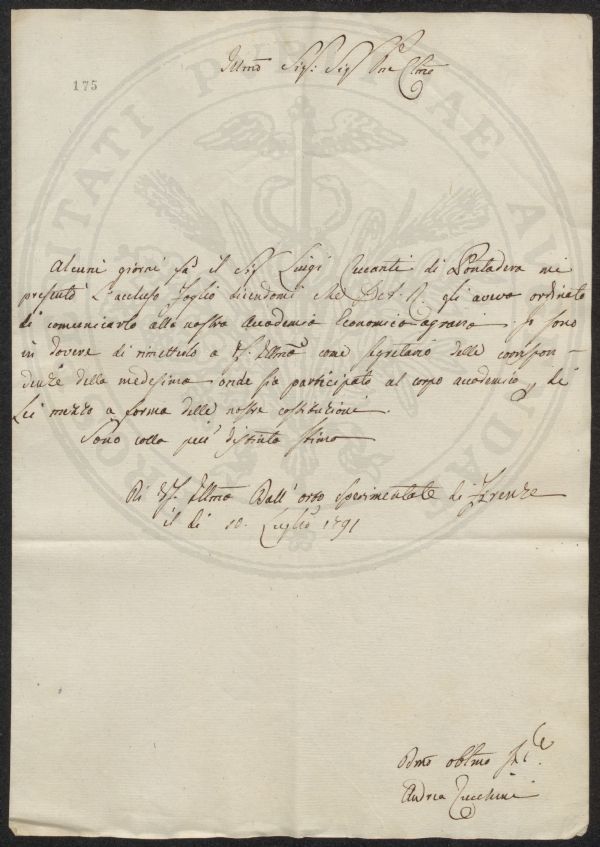 175
Illmo Sig: Sig Pne Clmo
Alcuni giorni fà il Sig Luigi di Pontadera mi
presentò l'accluso foglio dicendomi che gli aveva ordinato
di comunicarlo alla nostra Accademia Economico agraria. Io sono
in dovere di rimetterlo a V.S. Illma come segretario delle correspon-
denze della medesima onde sia participato al corpo accademico, di
Lei mezzo a forma delle nostre costituzioni.
Sono colla più distinta stima
Di V.S. Illma Dall' orto sperimentale di Firenze
il dì 10. Luglio 1791
obbmo
Andrea Zucchini
PUBLICAE